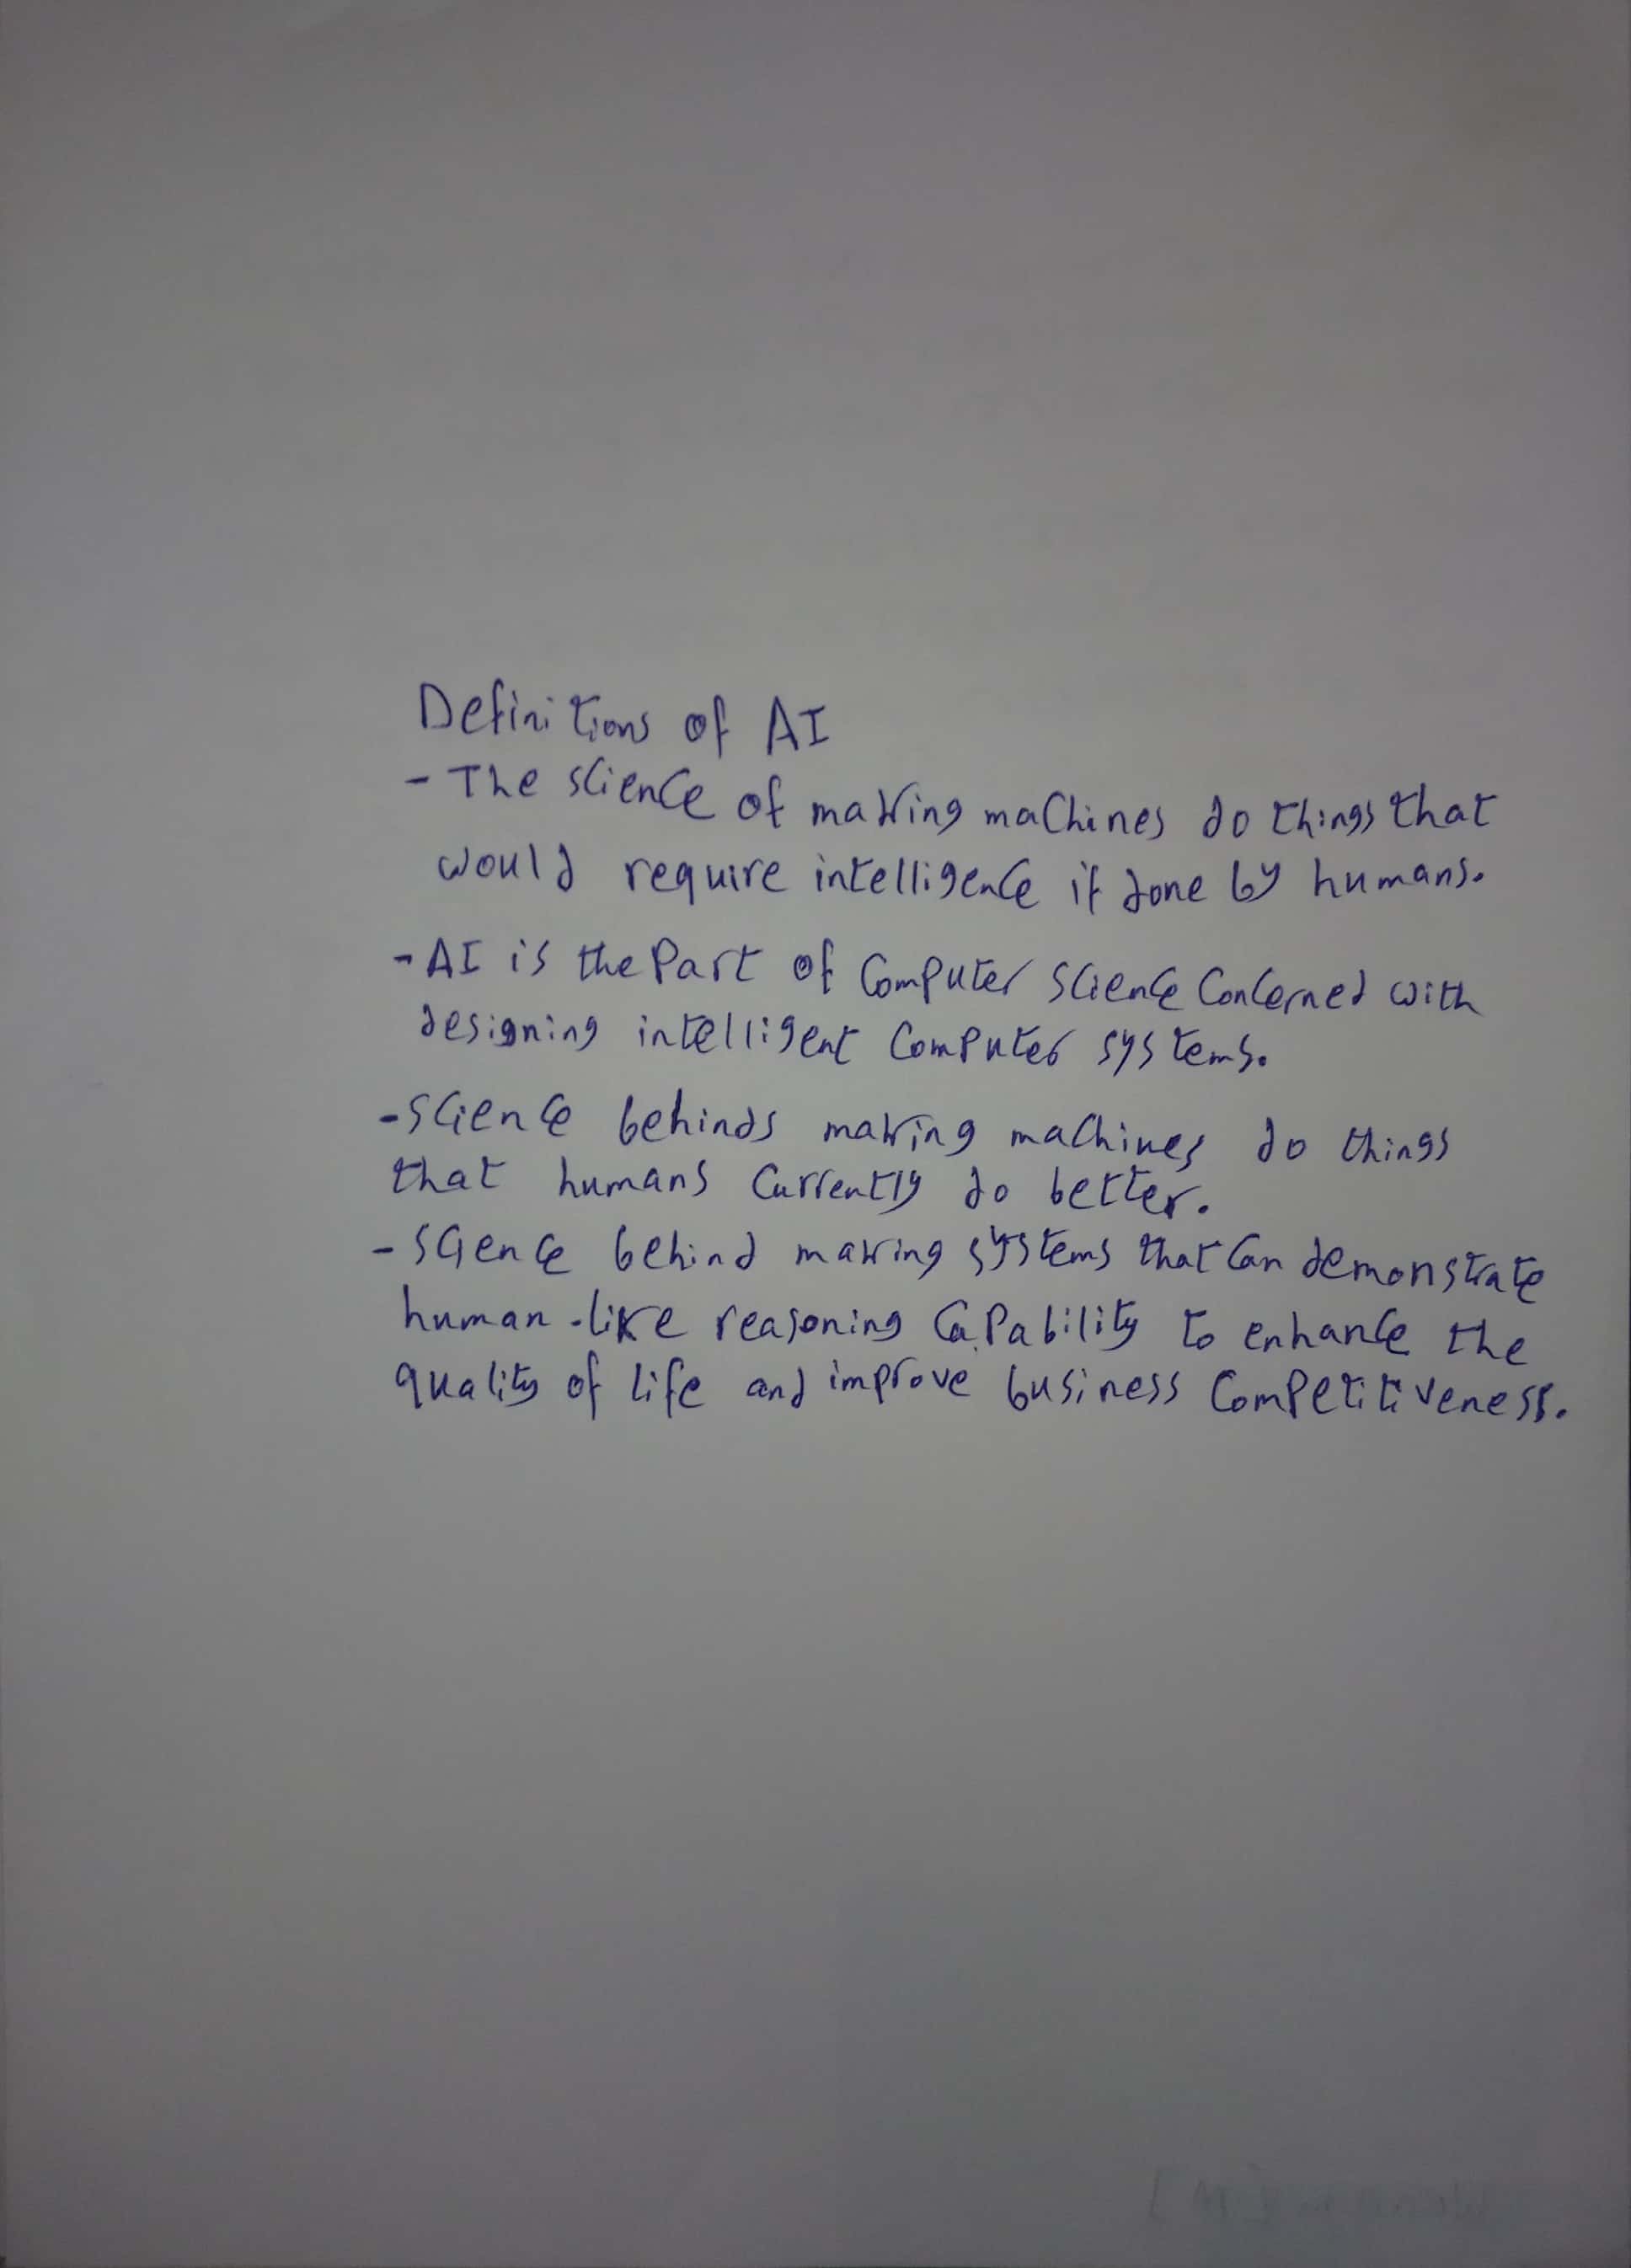 Definitions of AI
- The science of making machines do things that
would require intelligence if done by humans.
- AI is the Part of Computer Science Concerned with
designing intelligent Computer systems.
- Science behinds making machines do things
that humans Currently do better.
- Science behind making systems that Can demonstrate
human-like reasoning CaPability to enhance the
quality of life and improve business CompetitiVeness.